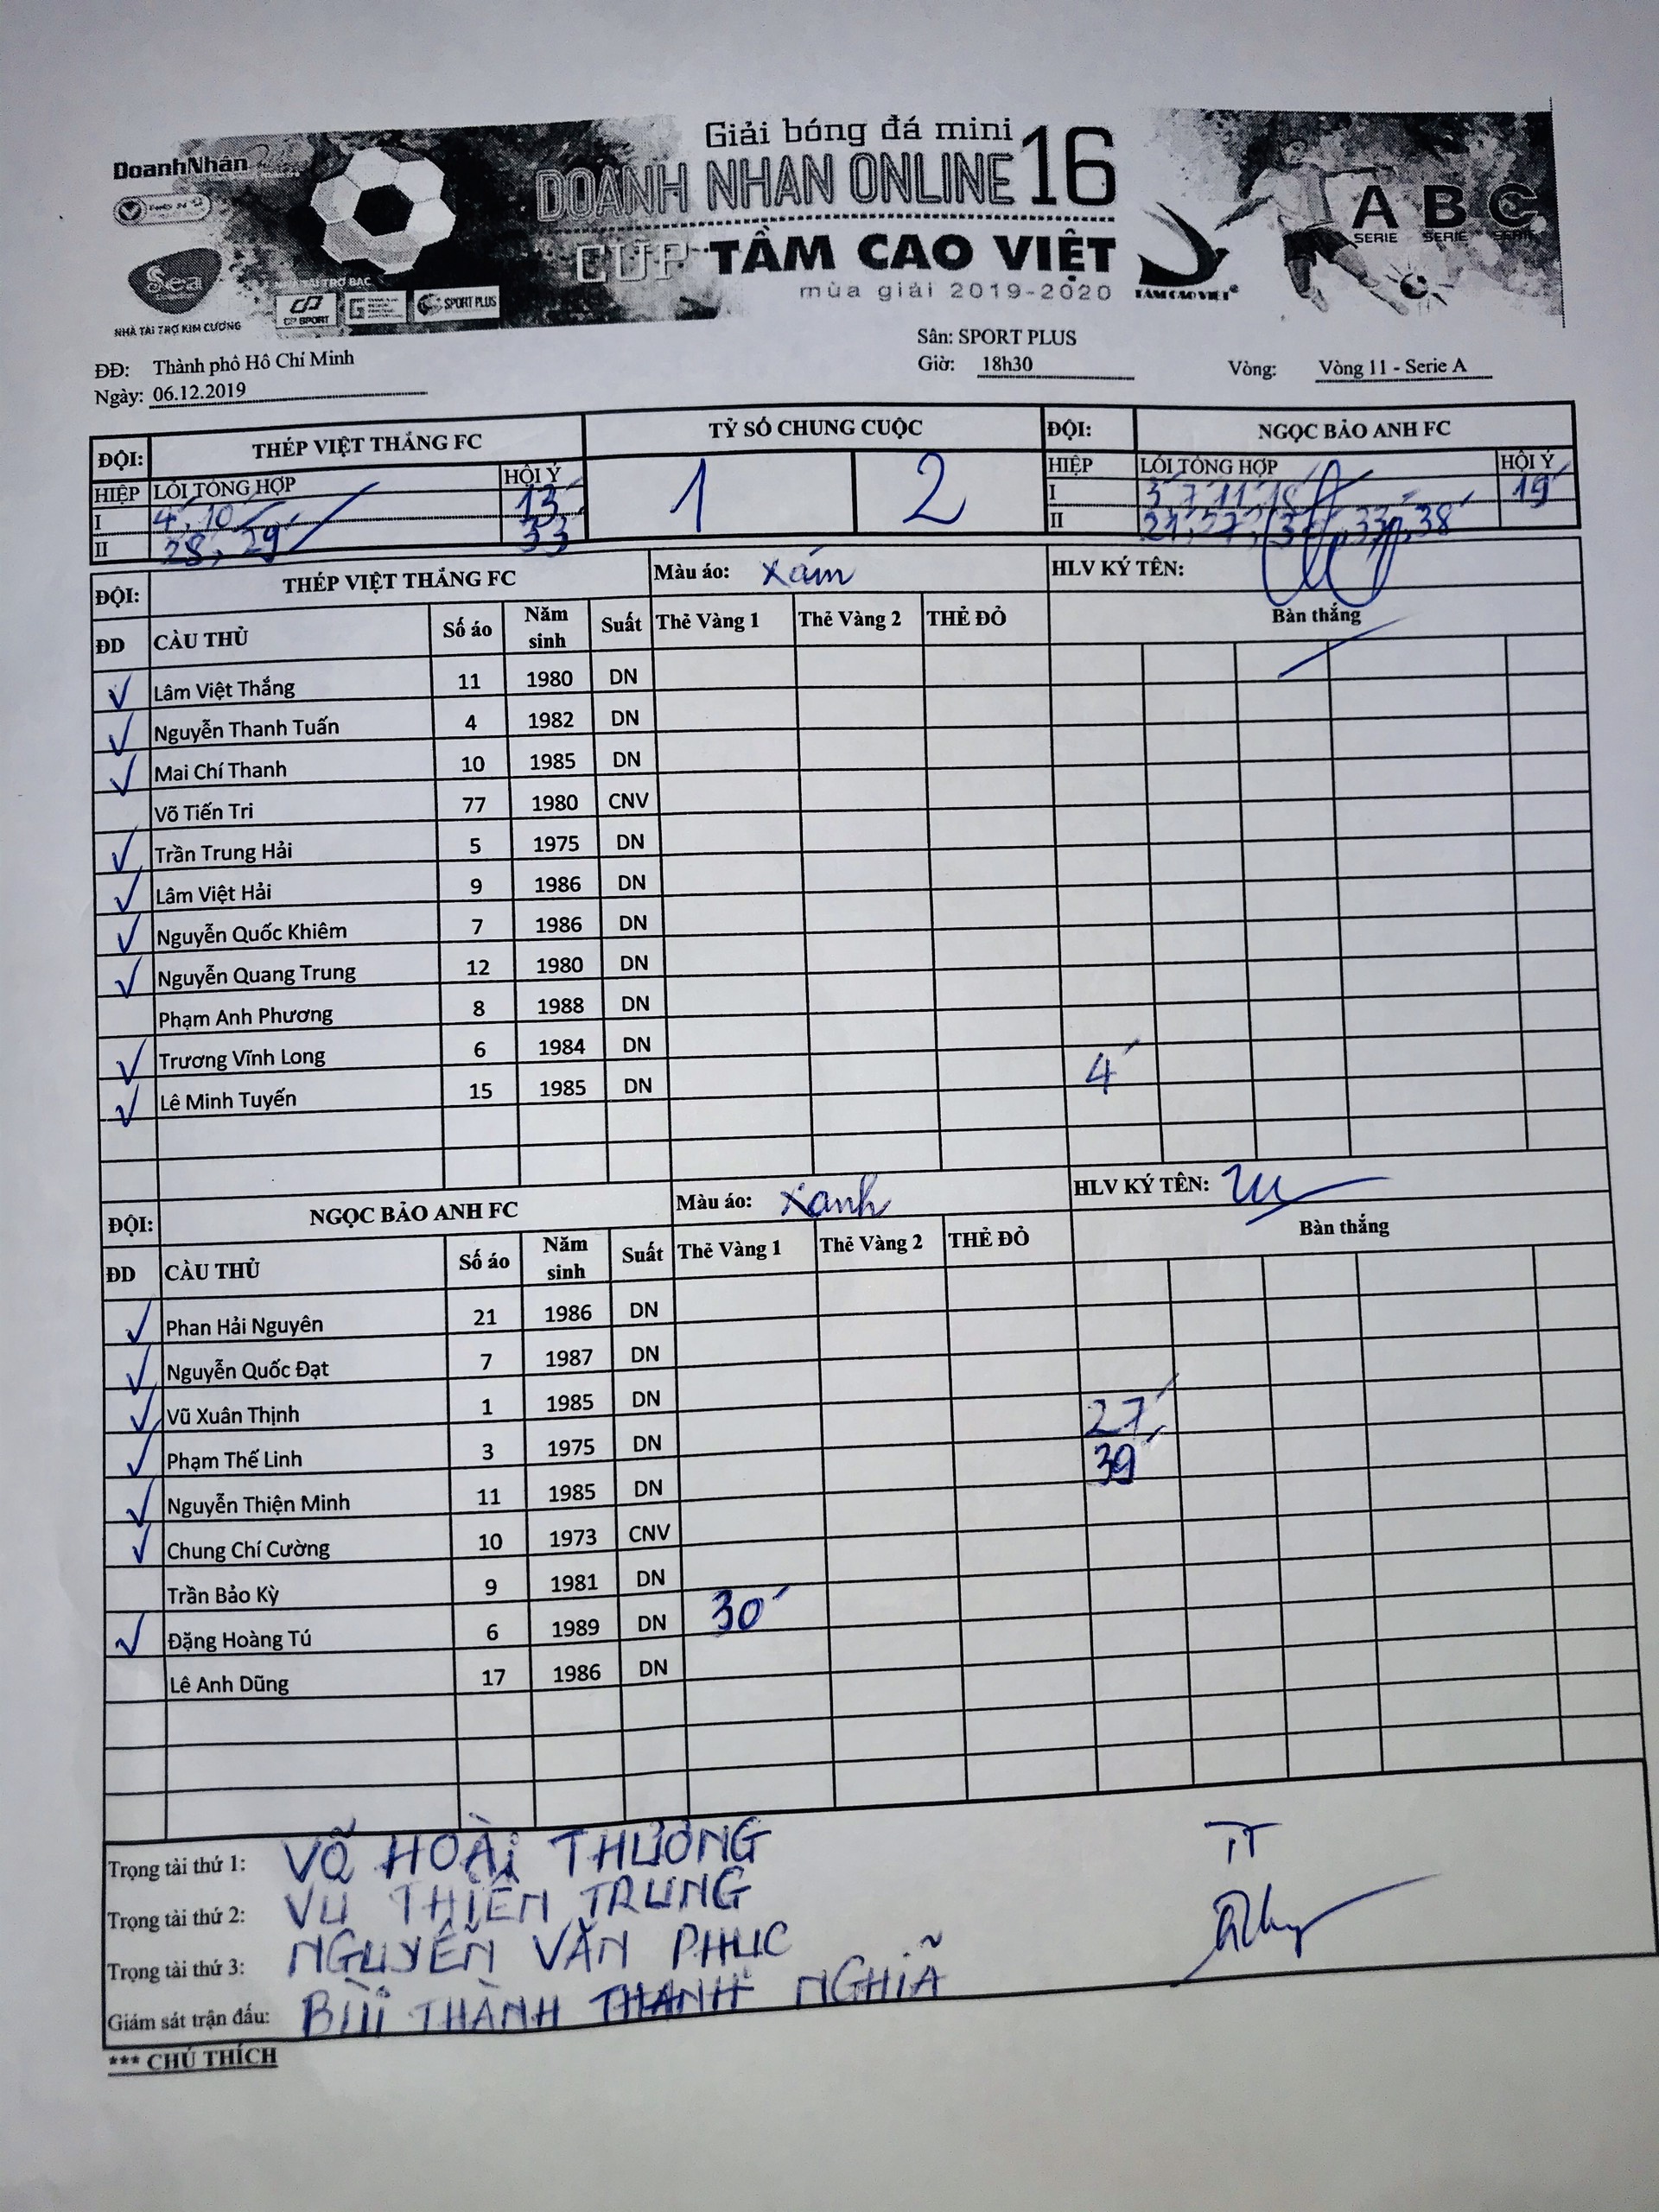 Giải bóng đá mini
DoanhNhân
DOANH NHAN ONLINE 16
A B C
SERIE SERIE SERIE
CUP TẦM CAO VIỆT
Sea
mùa giải 2019-2020
TẦM CAO VIỆT
NHÀ TÀI TRỢ BẠC
CP SPORT
SPORT PLUS
NHÀ TÀI TRỢ KIM CƯƠNG
Sân: SPORT PLUS
ĐĐ: Thành phố Hồ Chí Minh
Giờ: 18h30 Vòng: Vòng 11 - Serie A
Ngày: 06.12.2019
ĐỘI: THÉP VIỆT THẮNG FC TỶ SỐ CHUNG CUỘC ĐỘI: NGỌC BẢO ANH FC
HIỆP LỖI TỔNG HỢP HỘI Ý 1 2 HIỆP LỖI TỔNG HỢP HỘI Ý
I 4', 10' 13' I 3' 7' 11' 19'
II 28', 29' 33' II 21', 27', 38'
ĐỘI: THÉP VIỆT THẮNG FC Màu áo: Xám HLV KÝ TÊN:
ĐD CẦU THỦ Số áo Năm sinh Suất Thẻ Vàng 1 Thẻ Vàng 2 THẺ ĐỎ Bàn thắng
Lâm Việt Thắng 11 1980 DN
Nguyễn Thanh Tuấn 4 1982 DN
Mai Chí Thanh 10 1985 DN
Võ Tiến Tri 77 1980 CNV
Trần Trung Hải 5 1975 DN
Lâm Việt Hải 9 1986 DN
Nguyễn Quốc Khiêm 7 1986 DN
Nguyễn Quang Trung 12 1980 DN
Phạm Anh Phương 8 1988 DN
Trương Vĩnh Long 6 1984 DN 4'
Lê Minh Tuyến 15 1985 DN
ĐỘI: NGỌC BẢO ANH FC Màu áo: Xanh HLV KÝ TÊN:
ĐD CẦU THỦ Số áo Năm sinh Suất Thẻ Vàng 1 Thẻ Vàng 2 THẺ ĐỎ Bàn thắng
Phan Hải Nguyên 21 1986 DN
Nguyễn Quốc Đạt 7 1987 DN
Vũ Xuân Thịnh 1 1985 DN 27'
Phạm Thế Linh 3 1975 DN 39'
Nguyễn Thiện Minh 11 1985 DN
Chung Chí Cường 10 1973 CNV
Trần Bảo Kỳ 9 1981 DN
Đặng Hoàng Tú 6 1989 DN 30'
Lê Anh Dũng 17 1986 DN
Trọng tài thứ 1: VÕ HOÀI THƯƠNG TT
Trọng tài thứ 2: VU THIÊN TRUNG
Trọng tài thứ 3: NGUYỄN VĂN PHUC
Giám sát trận đấu: BÙI THÀNH THANH NGHIÃ
*** CHÚ THÍCH